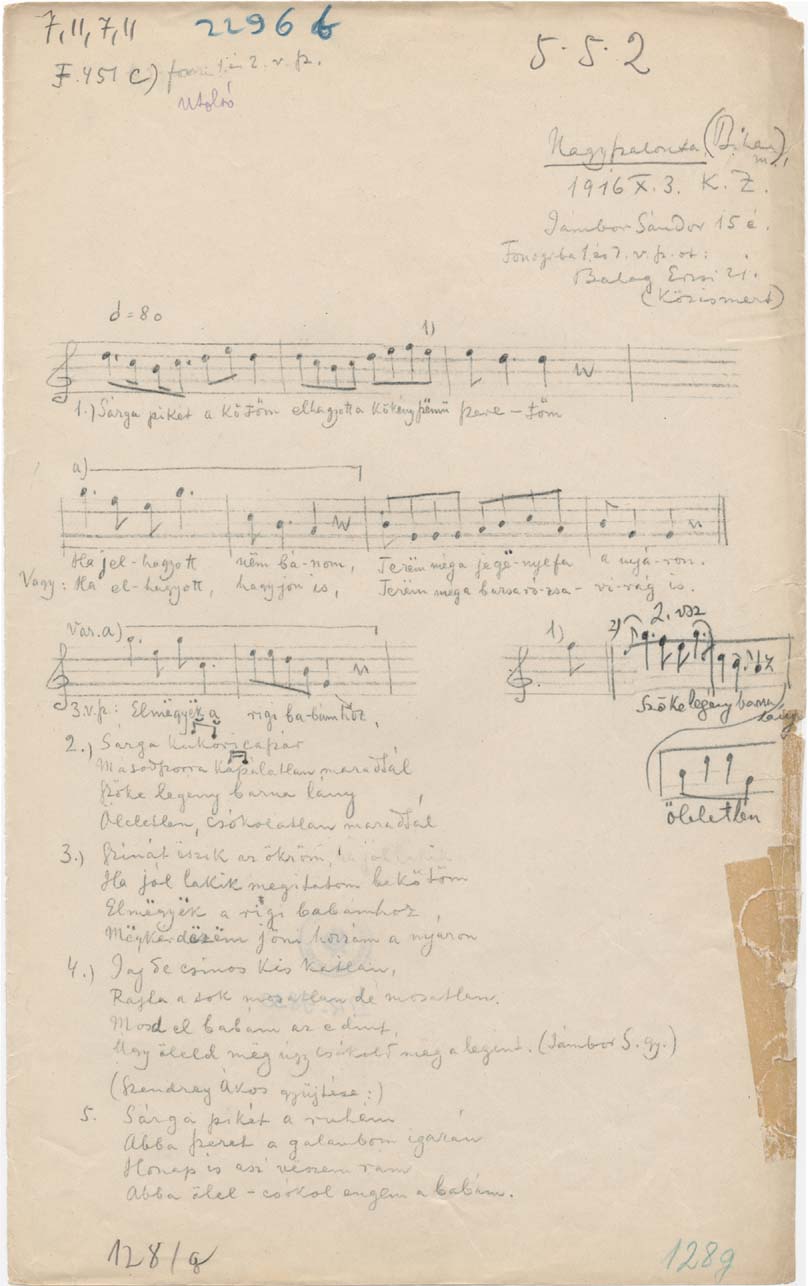 7, 11, 7, 11
2296 b
5·5·2
F.451 c) 1. és 2. v. sz.
utolsó
Nagyszalonta (Bihar m.)
1916 X. 3. K. Z.
Jámbor Sándor 15 é.
1. és 2. v. sz. ot:
Balog Erzsi 21.
(Közismert)
d = 80
1)
1.) Sárga pikét a kötőm elhagyott a kökényszëmű szere-tőm
a)
Ha jel-hagyott nëm bá-nom, Terëm méga jegë-nyefa a nyá-ron.
Vagy: Ha el-hagyott, hagyjon is, Terëm méga barsaró-zsa-vi-rág is.
Var. a)
1)
2) 2. vsz
3. v. sz: Elmëgyëk a rígi ba-bámhoz,
Szőke legény barna lány
2.) Sárga kukoricaszár
Másodszorra kapálatlan maradtál
Szőke legény barna lány,
Öleletlen, csókolatlan maradtál
öleletlen
3.) Szénát ëszik az ökröm,
Ha jól lakik megitatom bekötöm
Elmëgyëk a rígi babámhoz,
Mëgkérdëzëm jön-e hozzám a nyáron
4.) Jaj de csinos kis katlan,
Rajta a sok mosatlan de mosatlan.
Mosd el babám az edint,
Úgy öleld mëg úgy csókold mëg a legínt. (Jámbor S. gy.)
(Szendrey Ákos gyűjtése:)
5. Sárga pikét a ruhám
Abba szeret a galambom igazán
Hónap is aszt vëszem rám
Abba ölel-csókol engëm a babám.
128/g
128g